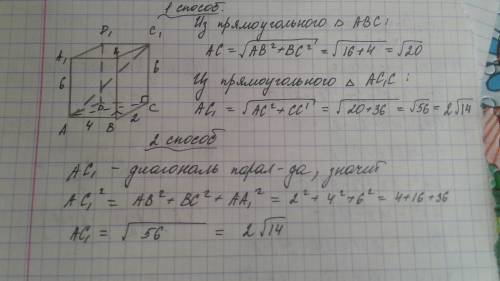 1 способ.
Из прямоугольного △ ABC:
AC = √AB² + BC² = √16+4 = √20
Из прямоугольного △ AC₁C:
AC₁ = √AC² + CC₁² = √20+36 = √56 = 2√14
D₁ C₁
A₁ B₁
6 6
D C
A 4 B 2
2 способ
AC₁ - диагональ парал-да, значит
AC₁² = AB² + BC² + AA₁² = 2² + 4² + 6² = 4+16+36
AC₁ = √56 = 2√14